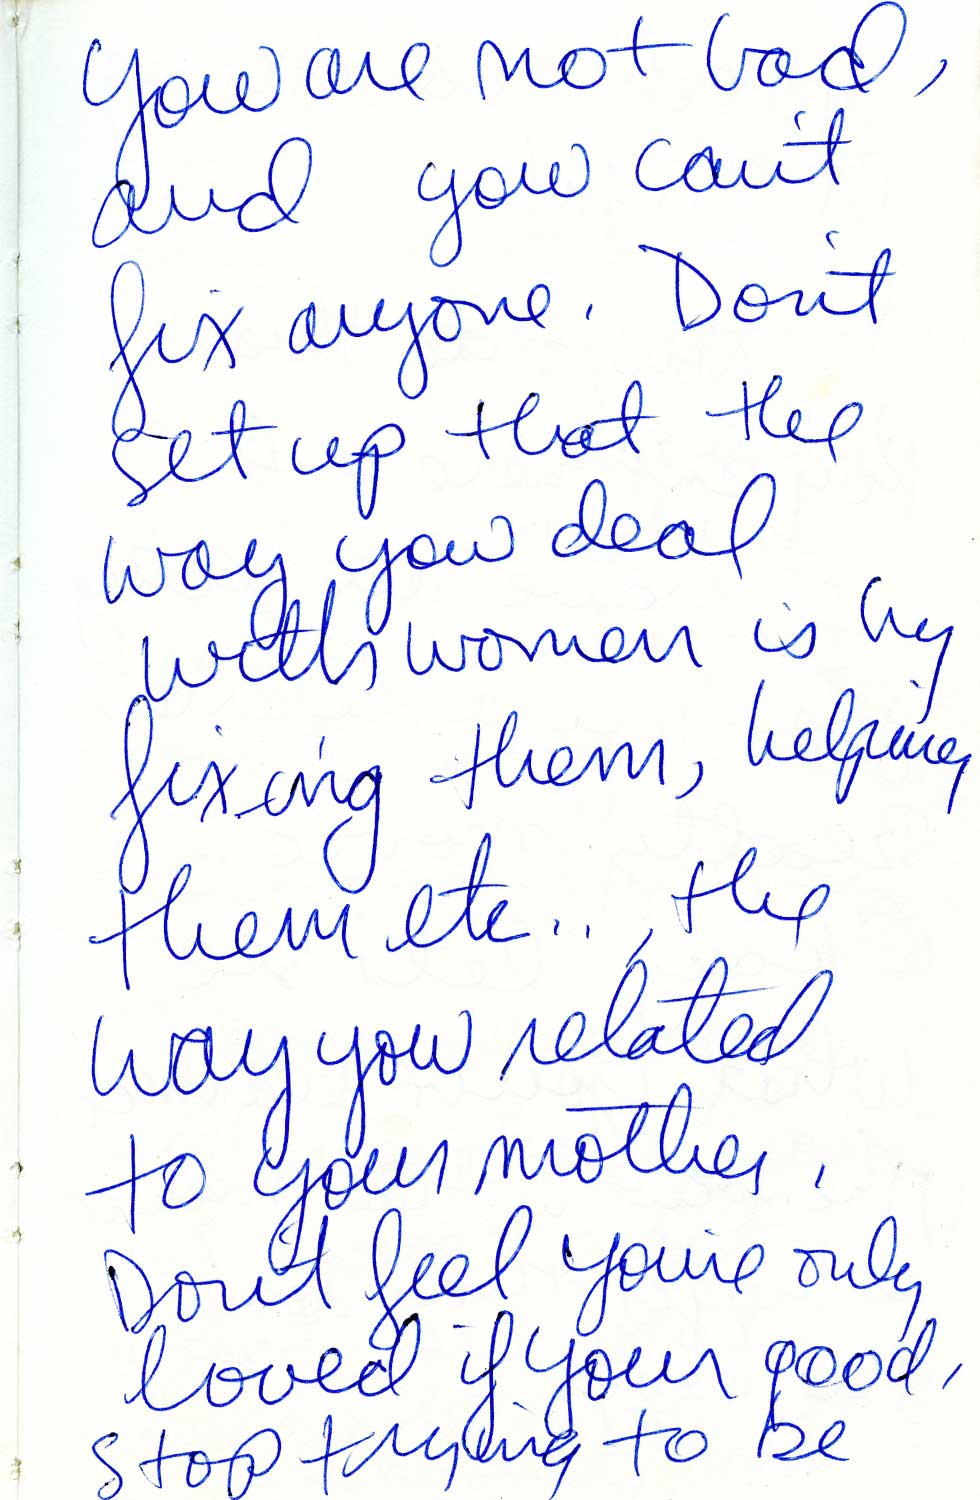 you are not bad,
and you can't
fix anyone. Don't
set up that the
way you deal
with women is by
fixing them, helping
them etc.., the
way you related
to your mother.
Don't feel you're only
loved if your good,
stop trying to be